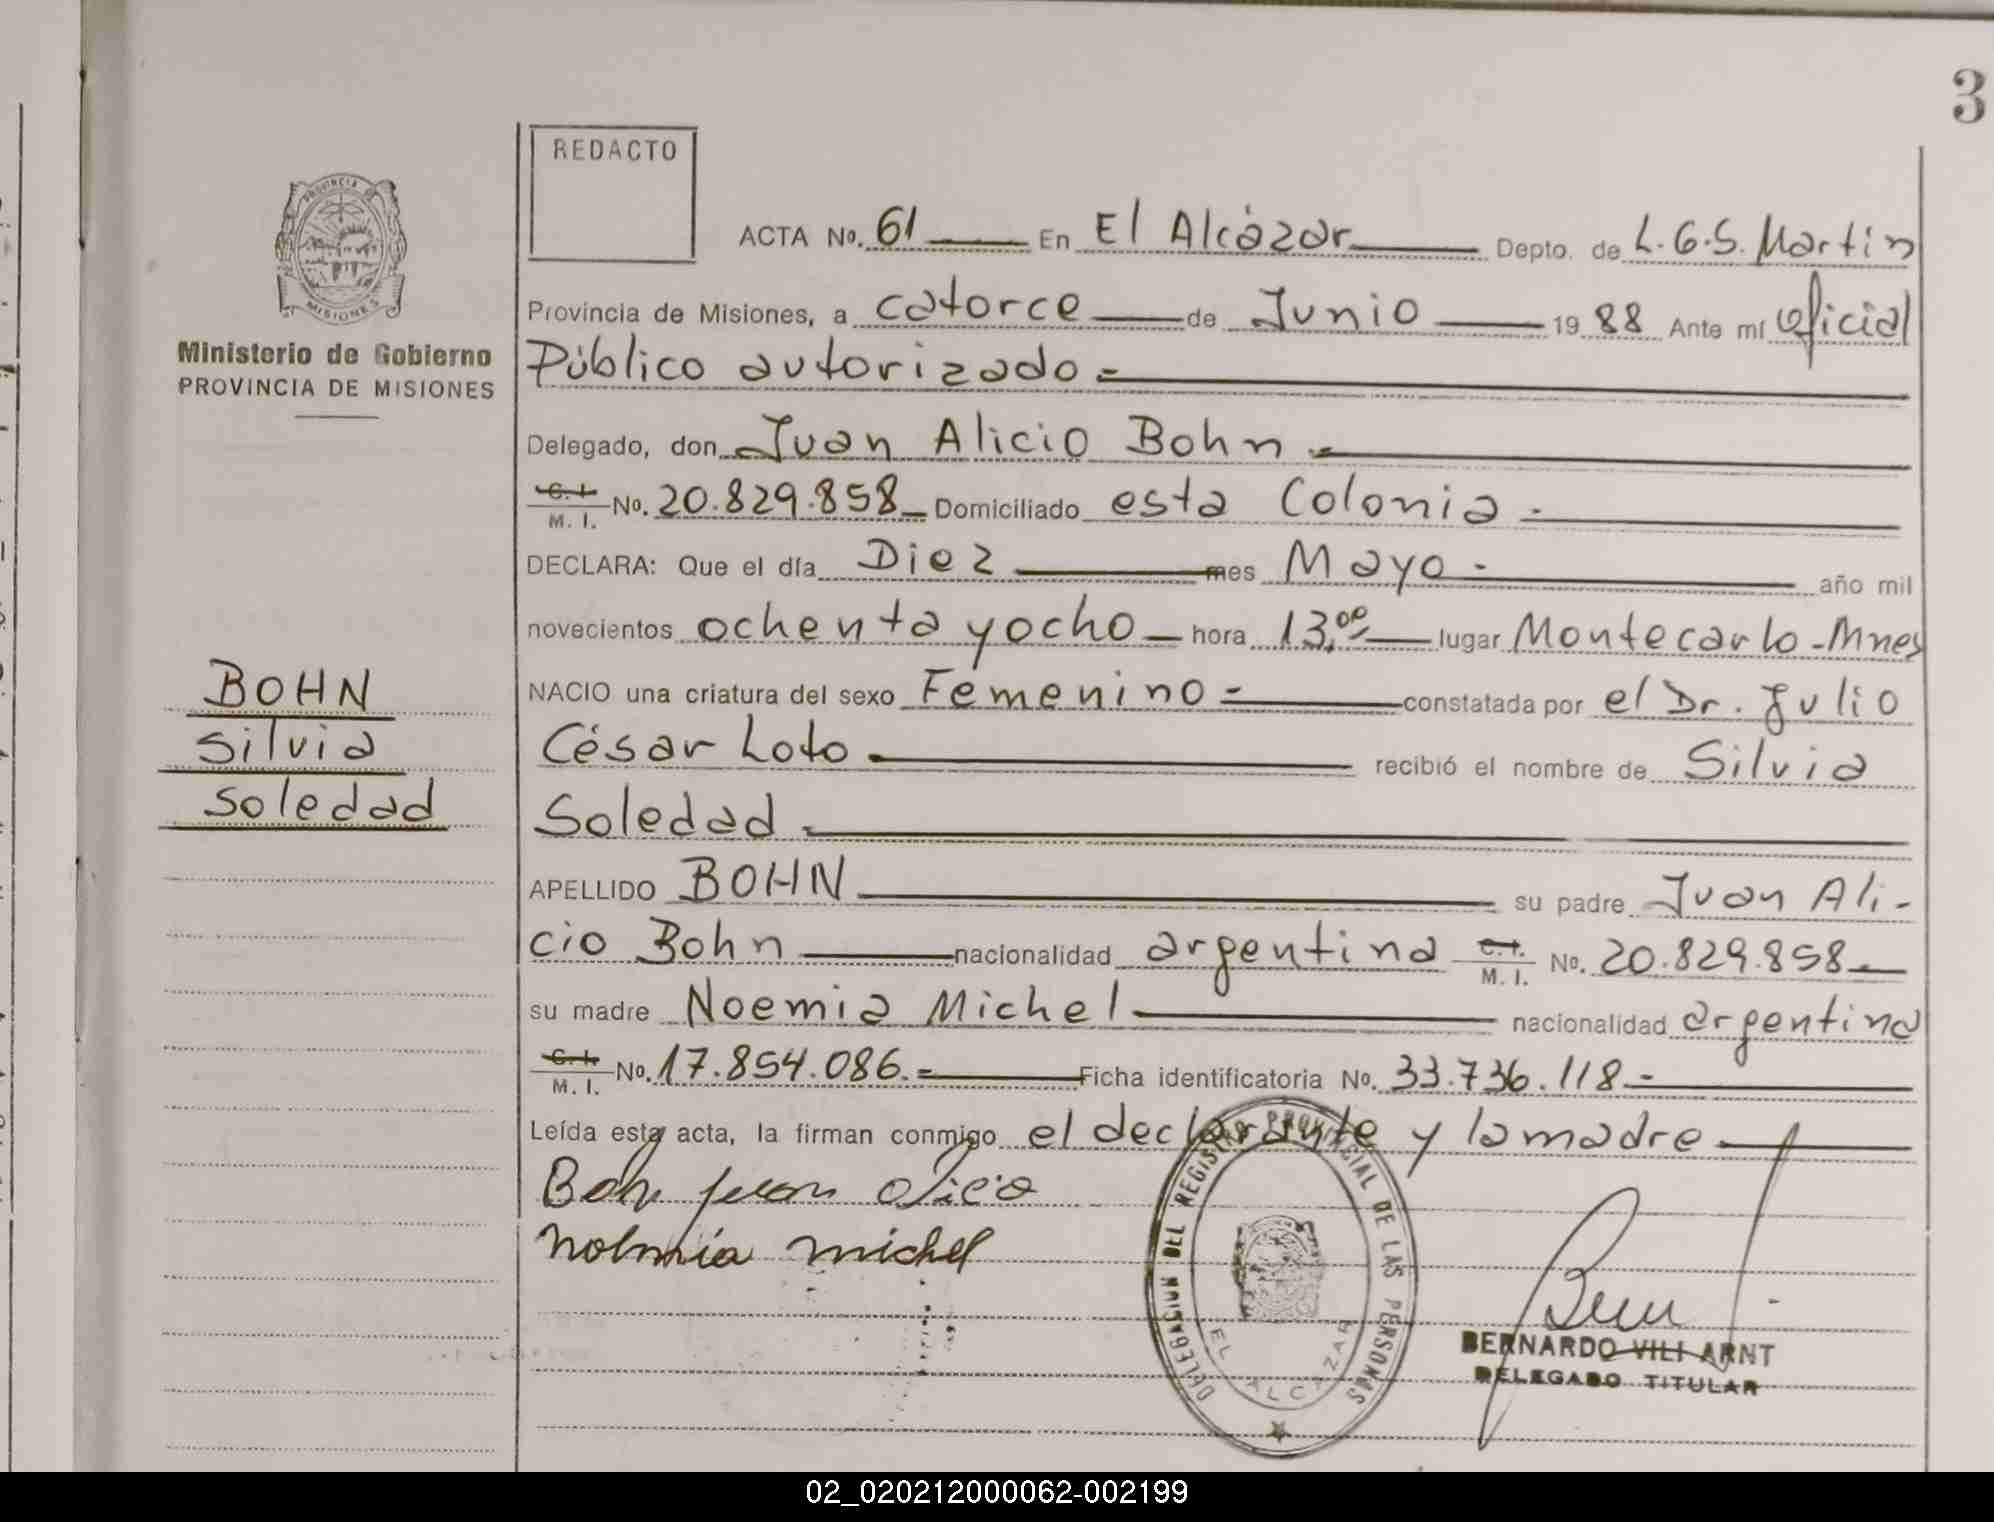 3
REDACTO
ACTA No. 61 En El Alcázar Depto. de L.G.S. Martin
Provincia de Misiones, a catorce de Junio 1988 Ante mí oficial
Público autorizado -
Delegado, don Juan Alicio Bohn -
C. I. / M. I. No. 20.829.858 Domiciliado esta Colonia -
DECLARA: Que el día Diez mes Mayo - año mil
novecientos ochenta y ocho hora 13,00 lugar Montecarlo - Mnes
NACIO una criatura del sexo Femenino - constatada por el Dr. Julio
César Loto recibió el nombre de Silvia
Soledad -
APELLIDO BOHN su padre Juan Ali-
cio Bohn nacionalidad argentina C. I. / M. I. No. 20.829.858
su madre Noemia Michel nacionalidad argentina
C. I. / M. I. No. 17.854.086.- Ficha identificatoria No. 33.736.118 -
Leída esta acta, la firman conmigo el declarante y la madre
Bohn juan alicio
noemia michel
PROVINCIA DE
MISIONES
Ministerio de Gobierno
PROVINCIA DE MISIONES
BOHN
Silvia
Soledad
DELEGACION DEL REGISTRO PROVINCIAL DE LAS PERSONAS
EL ALCAZAR
BERNARDO VILI ARNT
DELEGADO TITULAR
02_020212000062-002199